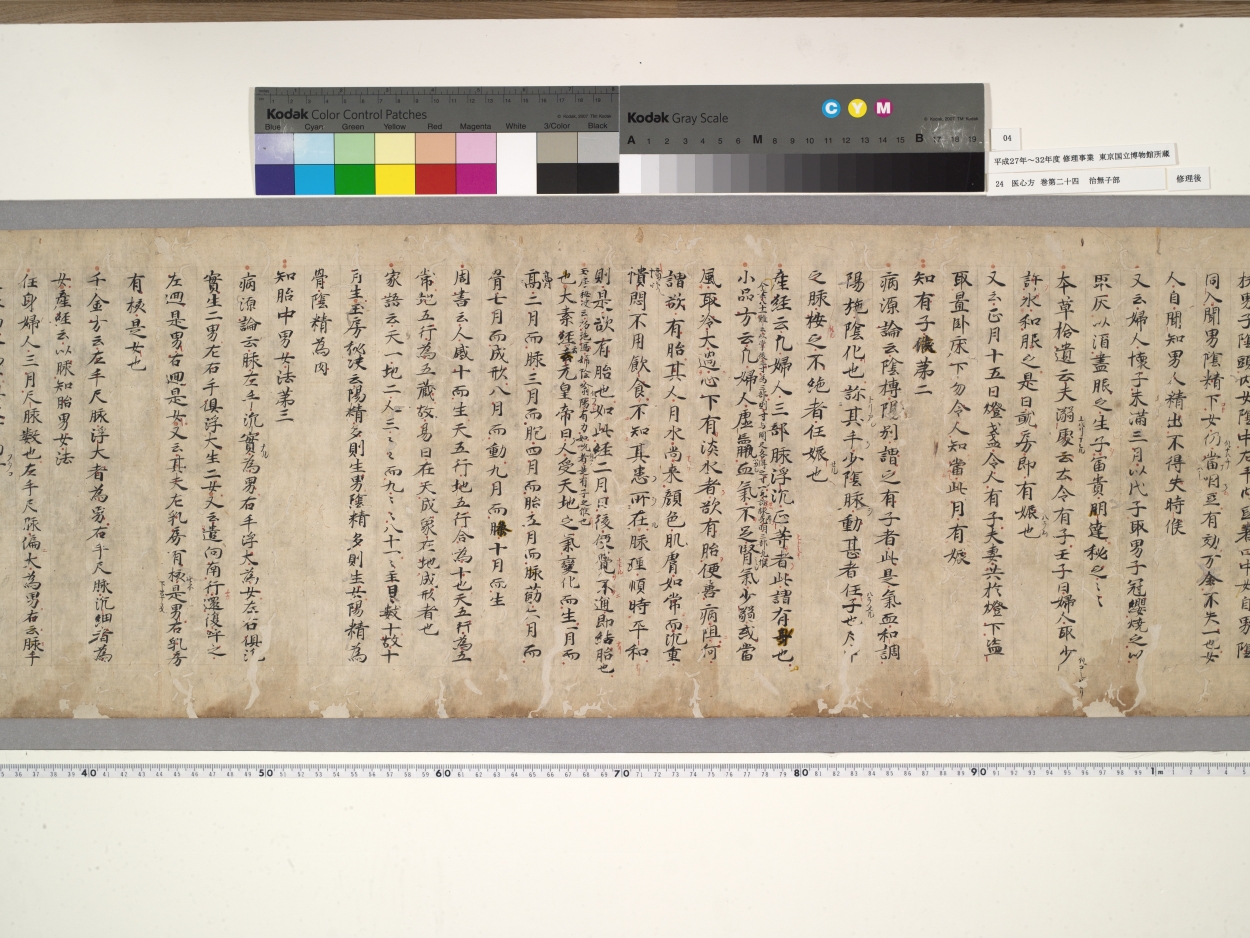 Kodak Color Control Patches
Blue Cyan Green Yellow Red Magenta White 3/Color Black
Kodak Gray Scale
C Y M
A 1 2 3 4 5 6 M 8 9 10 11 12 13 14 15 B 17 18 19
04
平成27年～32年度 修理事業 東京国立博物館所蔵
24 医心方 巻第二十四 治無子部
修理後
同入聞男陰精下女
人自聞知男人精出不得失時候
又云婦人懐子未満三月以戊子取男子冠纓焼之以
取灰以酒盡服之生子富貴明達秘之〻〻
本草拾遺云天溺處云令有子壬子日婦人取少
許水和服之是日就房即有娠也
又云正月十五日燈盞令人有子夫妻共於燈下盗
取置臥床下勿令人知當此月有娠
知有子後第二
病源論云陰搏陽別謂之有子者此是氣血和調
陽施陰化也診其手少陰脉動甚者任子也
之脉按之不絶者任娠也
産経云凡婦人三部脉浮沉正等者此謂有身也
小品方云凡婦人虚羸血氣不足腎氣少弱或當
風取冷大過心下有淡水者欲有胎便喜病阻何
謂欲有胎其人月水尚来顔色肌膚如常而沉重
憒悶不用飲食不知其患所在脉理順時平和
則是欲有胎也如此経二月日後便覺不通即結胎也
也大素経云元皇帝曰人受天地之氣變化而生一月而
膏二月而脉三月而肥四月而胎五月而脉動六月而
骨七月而成形八月而動九月而躁十月而生
周書云人感十而生天五行地五行合為十也天五行為五
常地五行為五蔵故易曰在天成象在地成形者也
家語云天一地二人三〻三而九〻八十一〻主日〻數十故十
月生玉房秘決云陽精多則生男陰精多則生女陽精為
骨陰精為肉
知胎中男女法第三
病源論云脉左手沉實為男右手浮大為女左右俱沉
實生二男左右手俱浮大生二女又云遣向南行還復呼之
左迴是男右迴是女又云其夫左乳房有核是男右乳房
有核是女也
千金方云左手尺脉浮大者為男右手尺脉沉細者為
女産経云以脉知胎男女法
任身婦人三月尺脉數也左手尺脉偏大為男右云脉手